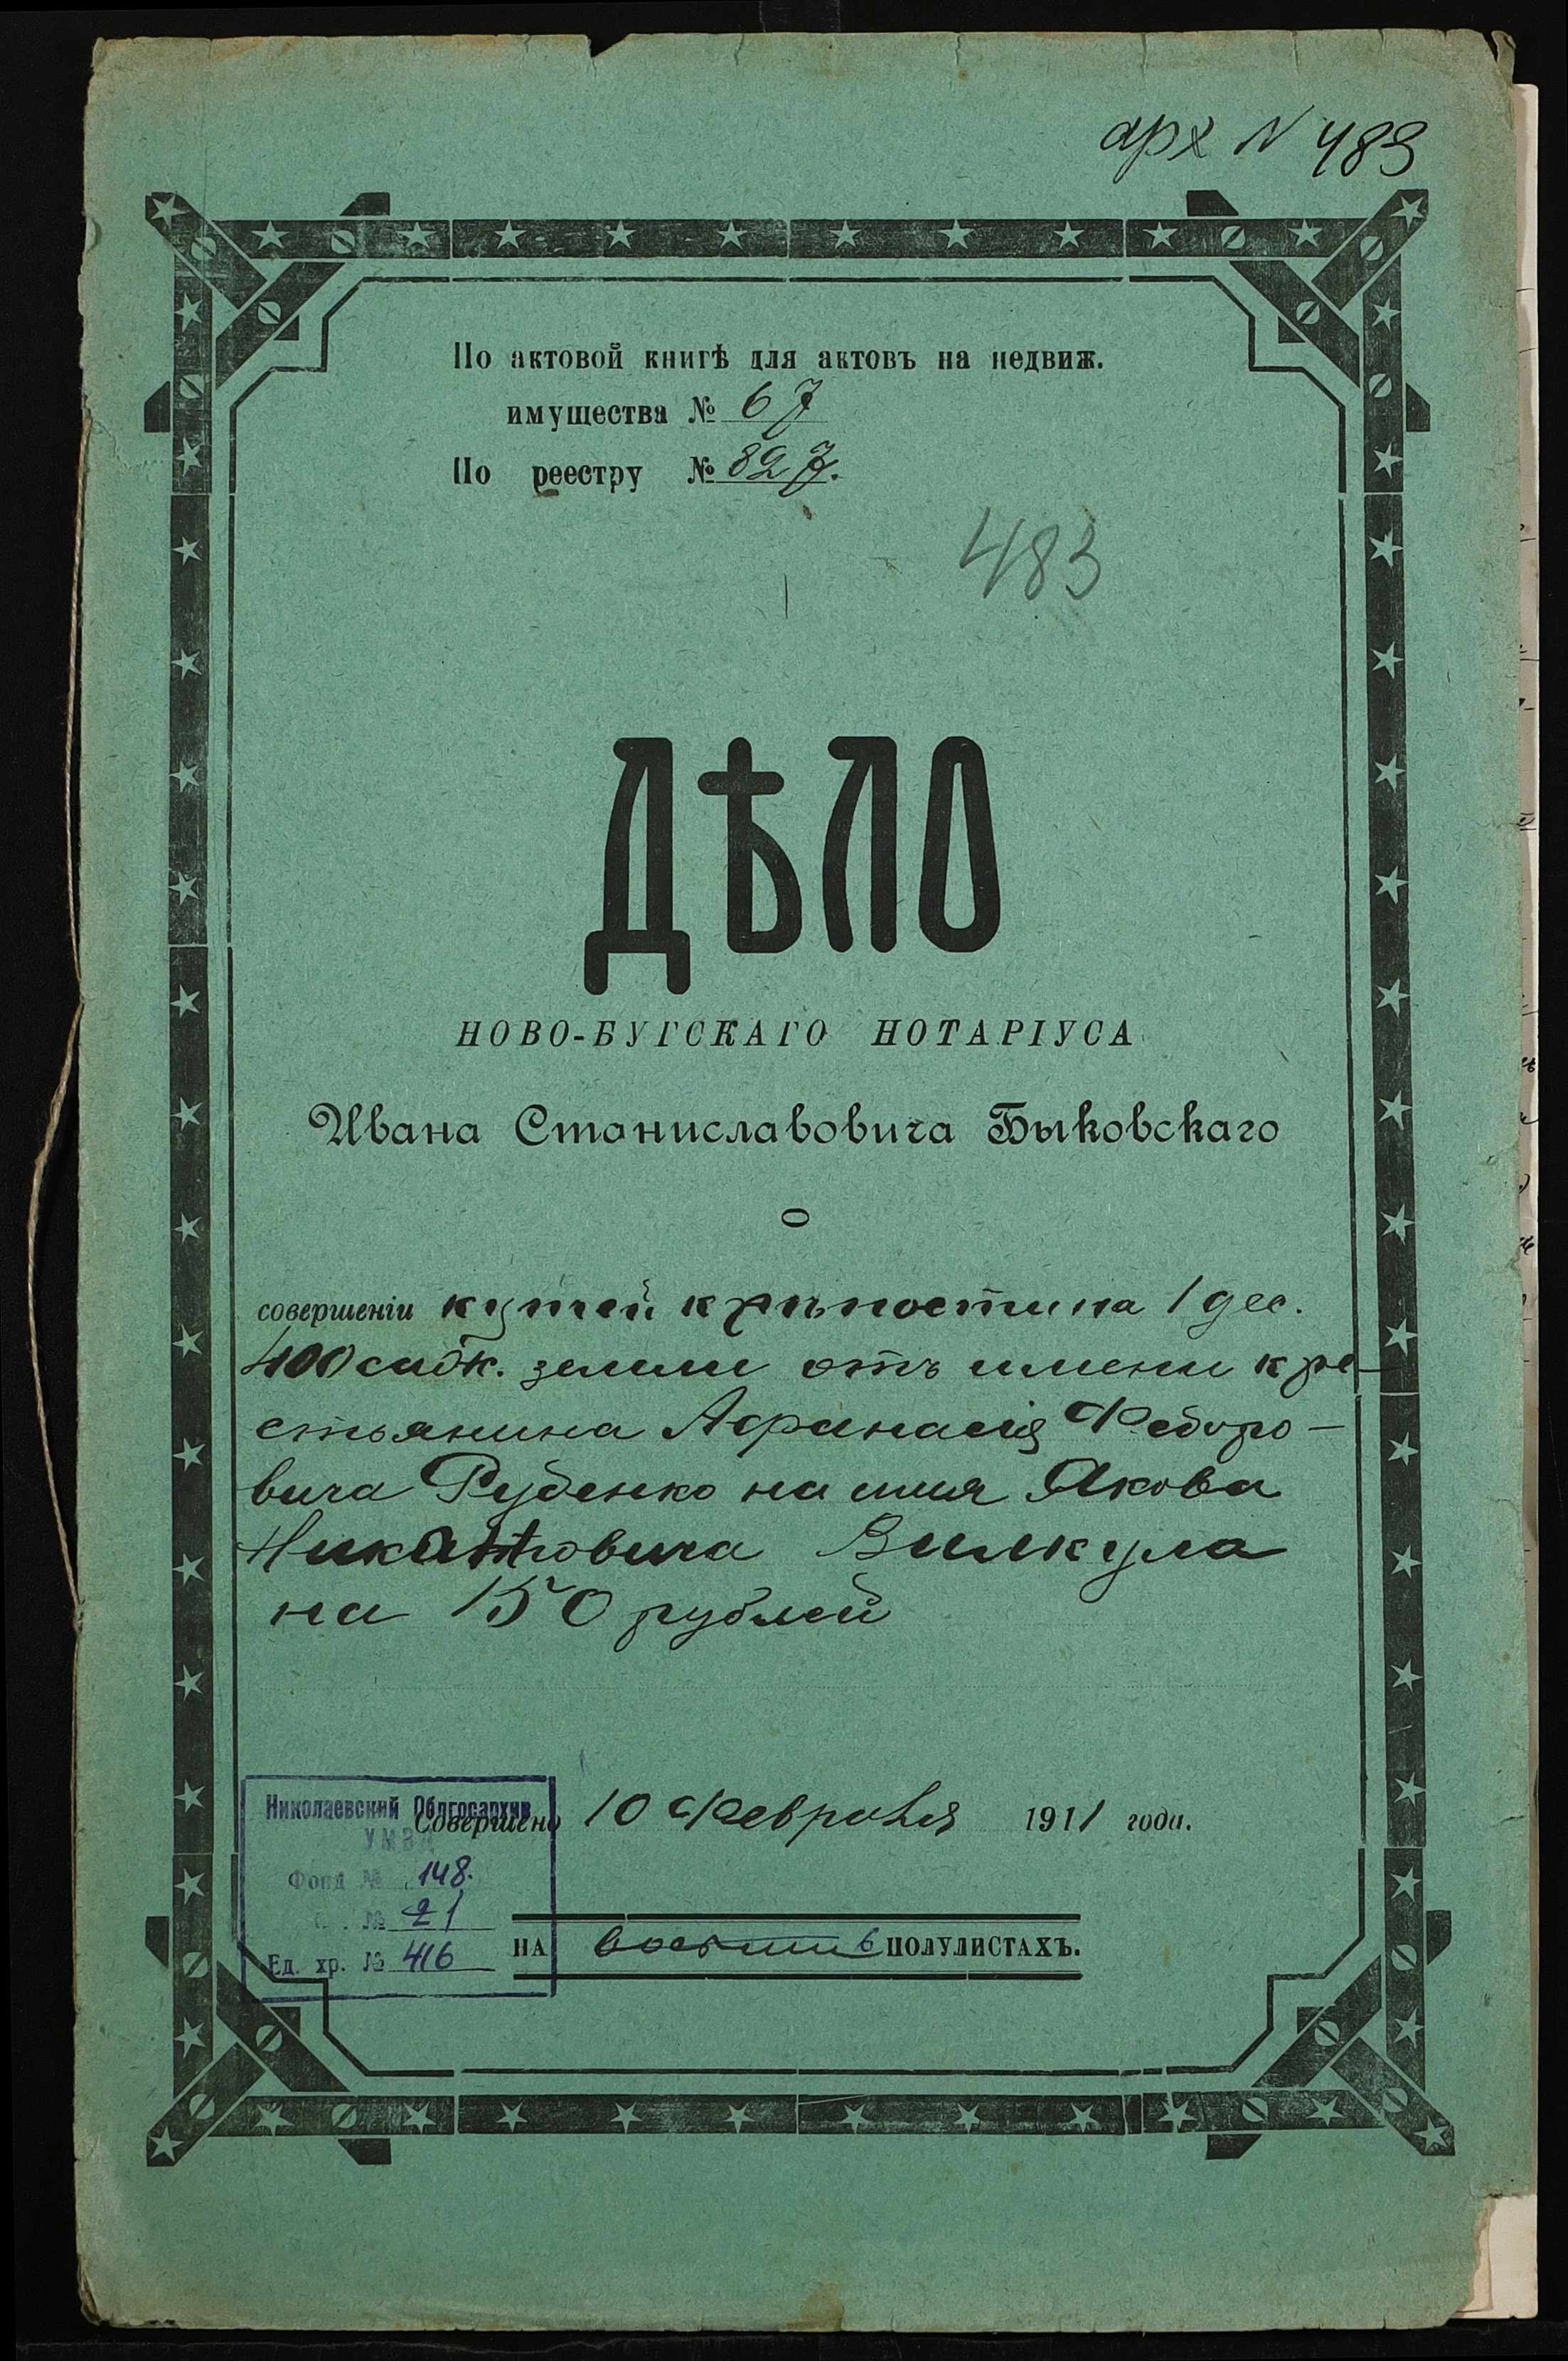 арх N 483
По актовой книгѣ для актовъ на недвиж.
имущества № 67
По реестру № 827.
483
ДѢЛО
НОВО-БУГСКАГО НОТАРІУСА
Ивана Станиславовича Быковскаго
о
совершеніи купчей крѣпости на 1 дес.
400 саж. земли отъ имени кре-
стьянина Афанасія Федоро-
вича Руденко на имя Якова
Вилкула
на 150 рублей
Николаевский Облгосархив
УМВД
Совершено 10 Февраля 1911 года.
Фонд № 148.
№ 21
Ед. хр. № 416
НА восьми 6 ПОЛУЛИСТАХЪ.